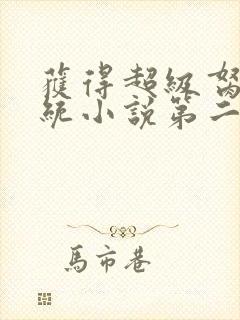 獲得超級
統小說第二
馬市巷